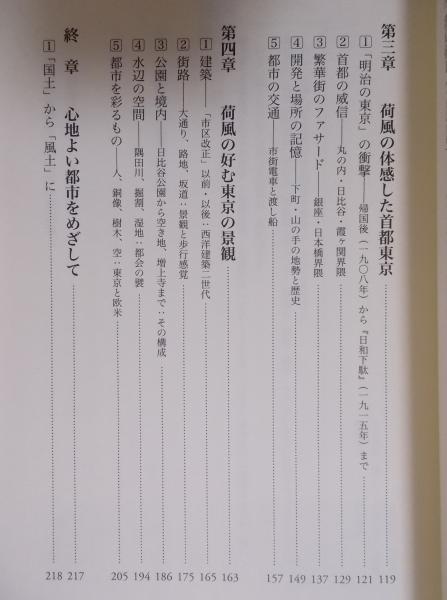 第三章　荷風の体感した首都東京 119
1「明治の東京」の衝撃——帰国後（一九〇八年）から『日和下駄』（一九一五年）まで 121
2 首都の威信——丸の内・日比谷・霞ヶ関界隈 129
3 繁華街のファサード——銀座・日本橋界隈 137
4 開発と場所の記憶——下町・山の手の地勢と歴史 149
5 都市の交通——市街電車と渡し船 157
第四章　荷風の好む東京の景観 163
1 建築——「市区改正」以前・以後：西洋建築二世代 165
2 街路——大通り、路地、坂道：景観と歩行感覚 175
3 公園と境内——日比谷公園から空き地、増上寺まで：その構成 186
4 水辺の空間——隅田川、掘割、湿地：都会の襞 194
5 都市を彩るもの——人、銅像、樹木、空：東京と欧米 205
終　章　心地よい都市をめざして 217
1「国土」から「風土」に 218